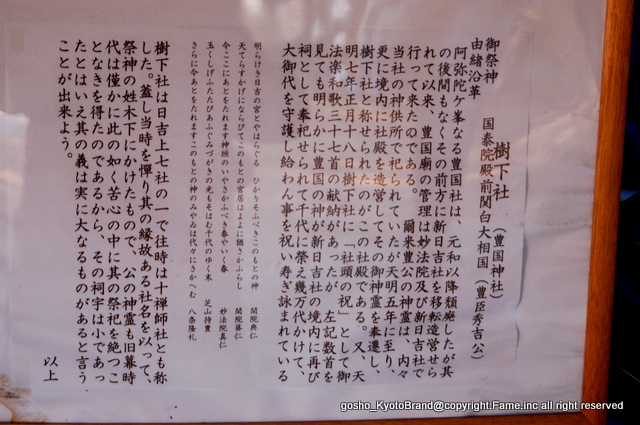 樹下社(豊国神社)
御祭神 国泰院殿前関白大相国(豊臣秀吉公)
由緒沿革
阿弥陀ケ峯なる豊国社は、元和以降頽廃したが其
の後間もなくその前方に新日吉社を移転造営せら
れて以来、豊国廟の管理は妙法院及び新日吉社で
行って来たのである。爾来豊公の神霊は、内々
当社の神供所で祀られていたが天明五年に至り、
更に境内に社殿を造営してその御神霊を奉遷し、
樹下社と称せられたのがこの社殿である。又、天
明七年正月十八日樹下社に「社頭の祝」として御
法楽和歌三十七首の献納があったが、左記数首を
見ても明らかに豊国の神が新日吉社の境内に再び
祠として奉祀せられて千代に栄え幾万代かけて、
大御代を守護し給わん事を祝い寿ぎ詠まれている
明らけき日吉の宮とやはらぐる ひかりそふべきこのもとの神 閑院典仁
天てらすかげにならびてこのもとの宮居はよよに猶さかふらし 閑院美仁
今ここにあとをたれます神垣のいやさかふべき春やいく春 妙法院真仁
玉くしげふたたびあふぐみづがきの光もそはむ千代のゆく末 芝山持豊
さらに今あとをたれますこのもとの神のみやゐは代々にさかへむ 八条隆礼
樹下社は日吉上七社の一で往時は十禅師社とも称
した。蓋し当時を憚り其の縁故ある社名を以って、
祭神の姓木下にかけたもので、公の神霊も旧幕時
代は僅かに此の如く苦心の中に其の祭祀を絶つこ
となきを得たのであるから、その祠宇は小であっ
たとはいえ其の義は実に大なるものがあると言う
ことが出来よう。
以上
gosho_KyotoBrand@copyright.Fame.inc all right reserved